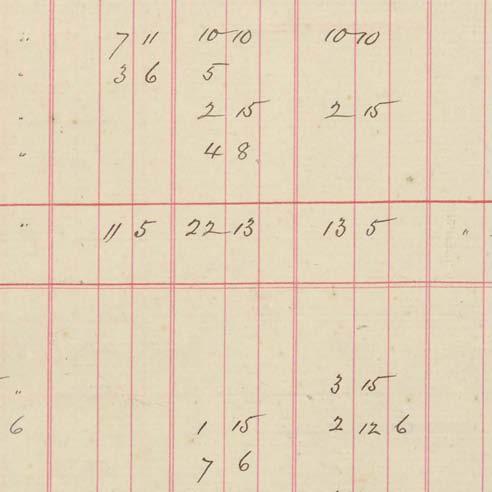 " 7 11 10 10 10 10
" 3 6 5
" 2 15 2 15
" 4 8
" 11 5 22 13 13 5 "
" 3 15
6 1 15 2 12 6
7 6